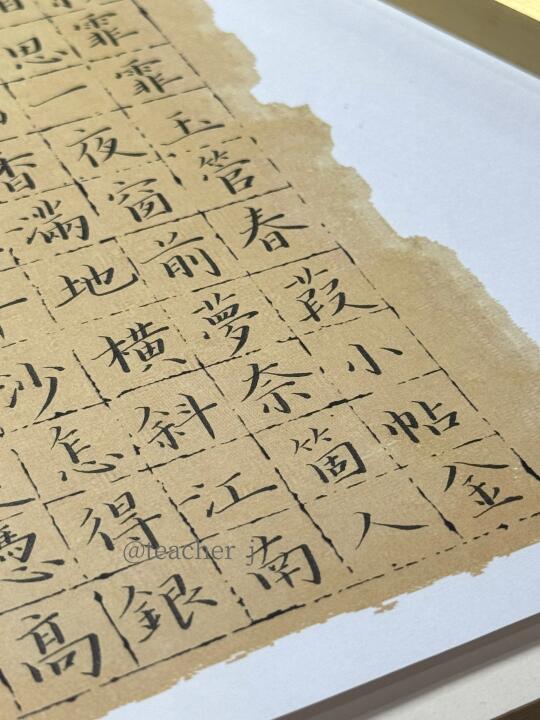 霏霏玉管春葭小帖金
思一夜窗前夢奈箇人
香滿地橫斜江南
沙怎得銀
憑高
@teacher j